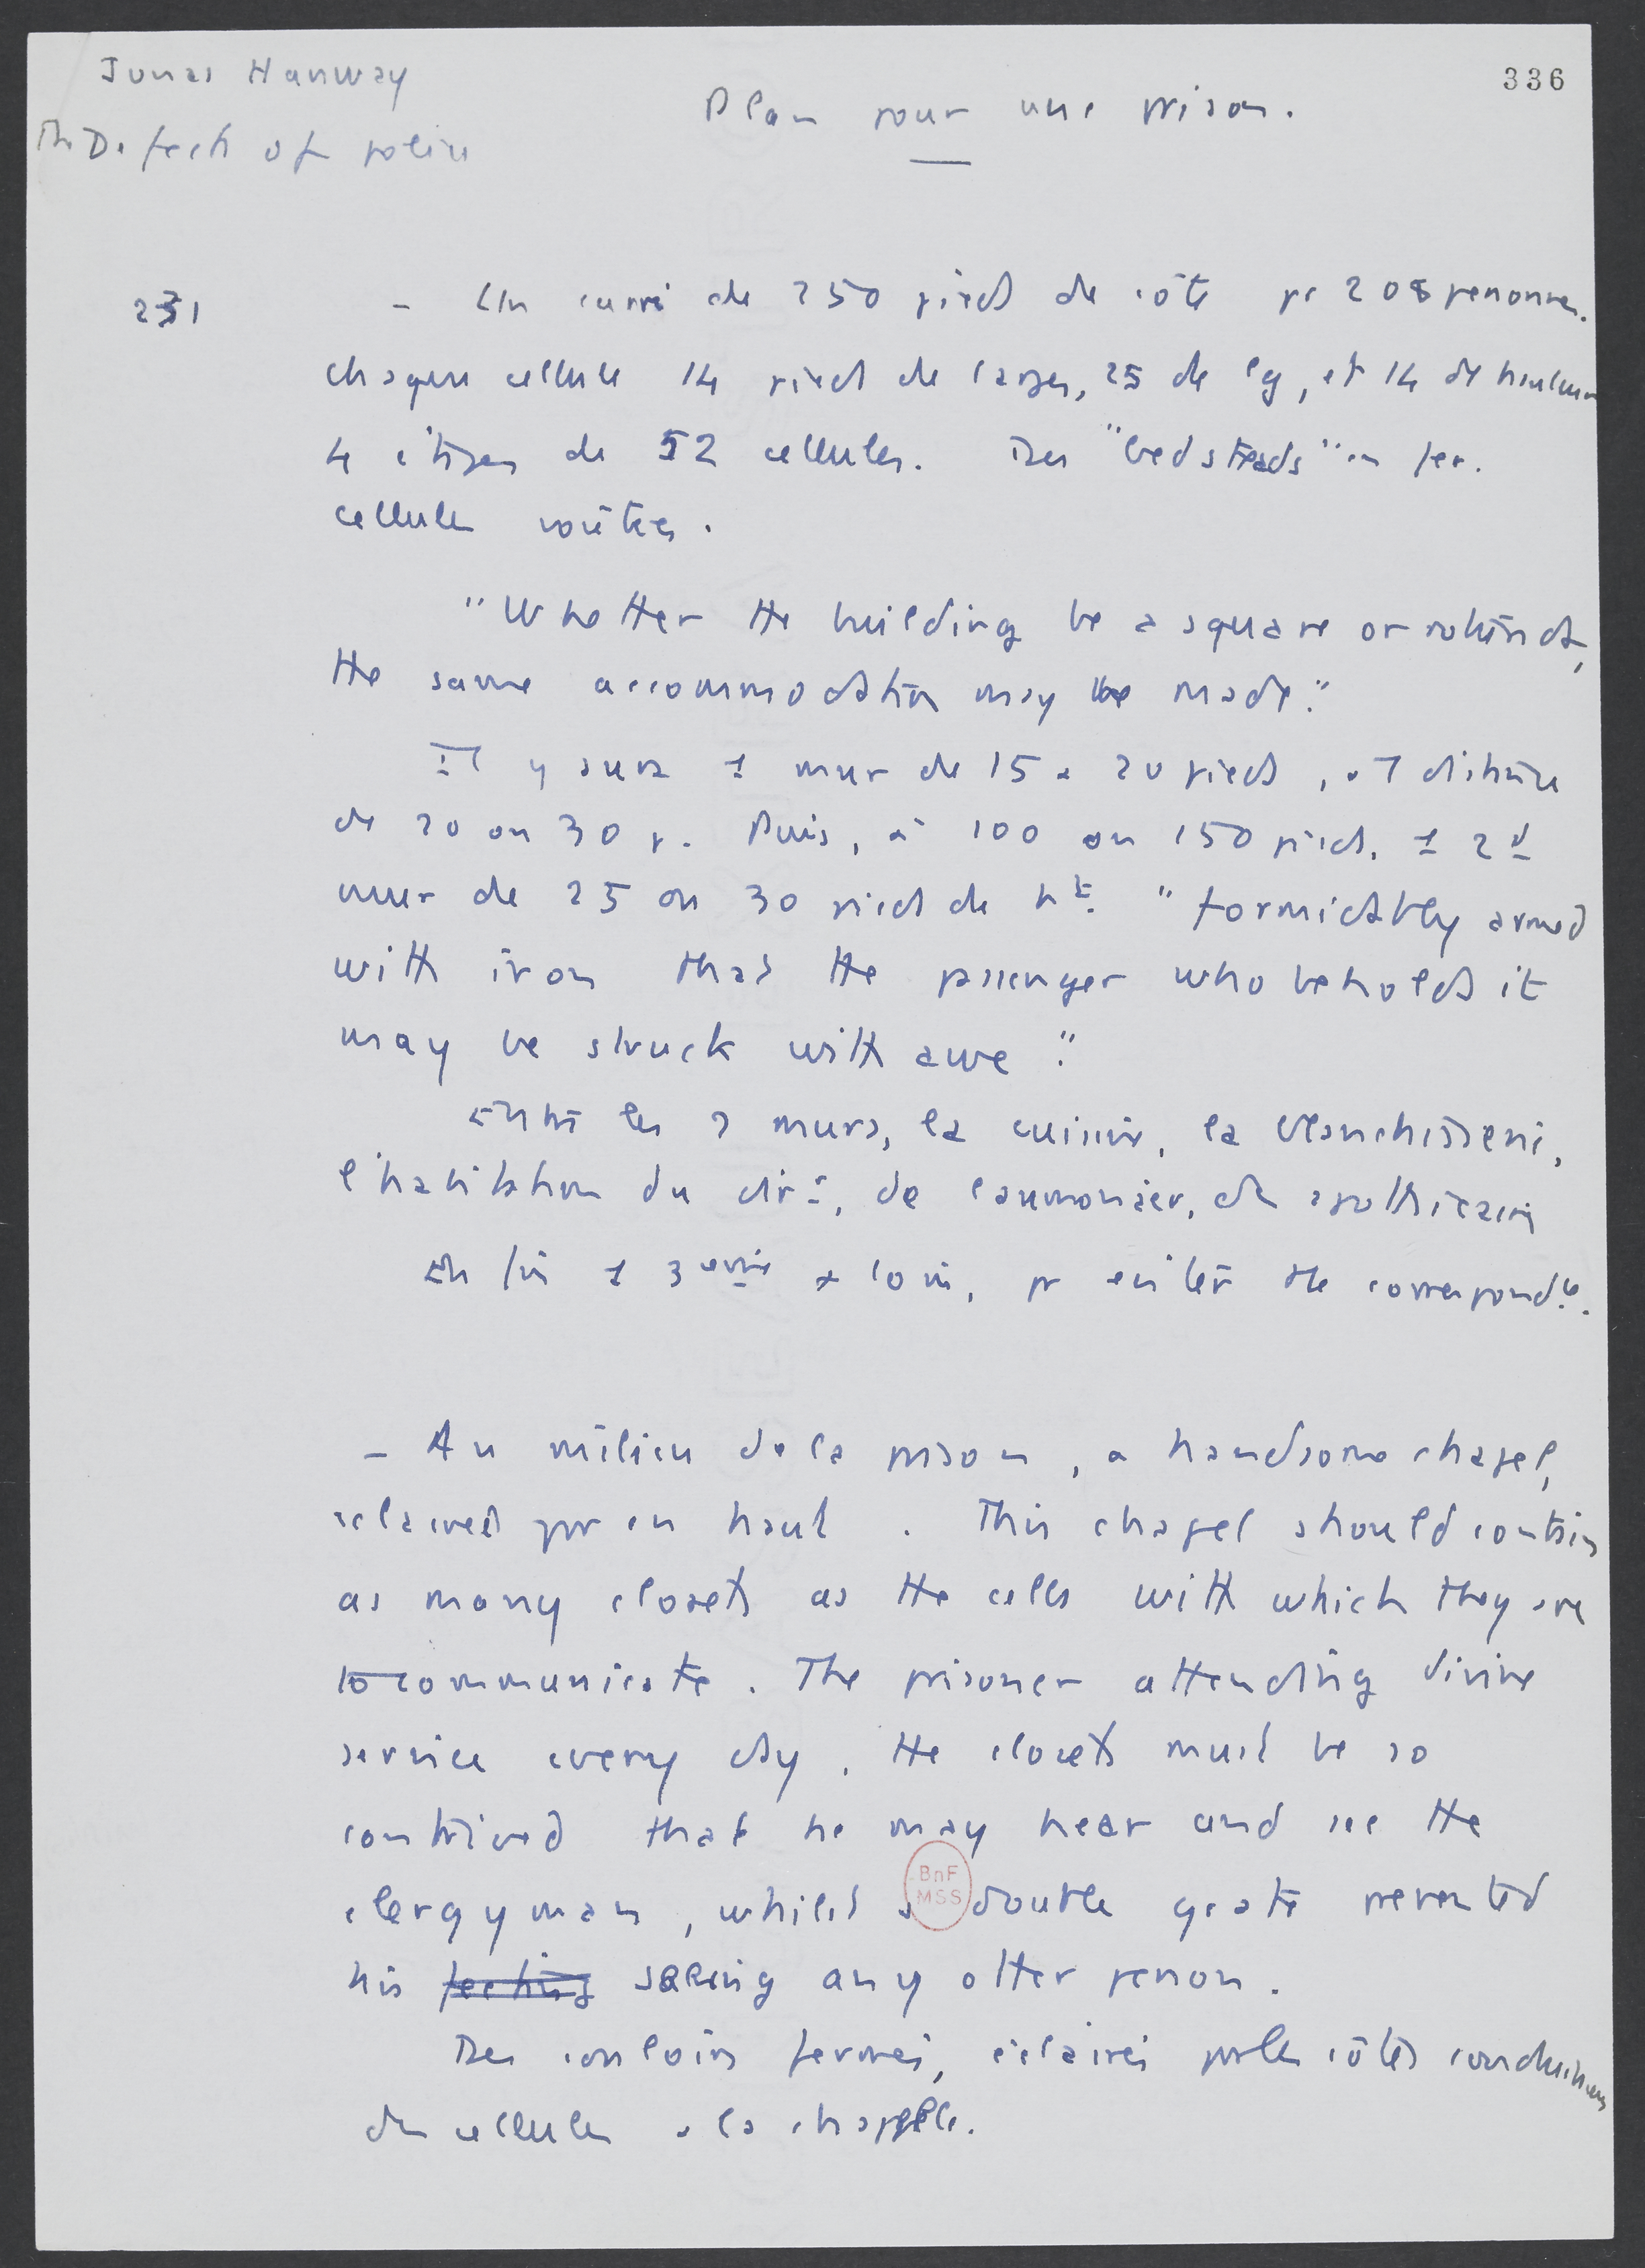 Jonas Hanway
336
Plan pour une prison.
The Defects of police
231
- Un carré de 250 pieds de côté pr 208 personnes.
chaque cellule 14 pieds de large, 25 de lg, et 14 de hauteur
4 étages de 52 cellules. Des "bedsteads" en fer.
cellules voûtées.
"Whether the building be a square or rotund,
the same accommodation may be made."
Il y aura 1 mur de 15 à 20 pieds, à 1 distance
de 20 ou 30 p. Puis, à 100 ou 150 pieds, 1 2d
mur de 25 ou 30 pieds de ht. "formidably armed
with iron that the passenger who beholds it
may be struck with awe."
Entre les 2 murs, la cuisine, la blanchisserie,
l'habitation du dir, de l'aumonier, de apothicaire
Enfin 1 3eme + loin, pr eviter the correspond.
- Au milieu de la prison, a handsome chapel,
eclairée par en haut. This chapel should contain
as many closets as the cells with which they are
to communicate. The prisoner attending divine
service every day, the closets must be so
contrived that he may hear and see the
clergyman, whilst a double grate prevented
BnF
MSS
his feeling seeing any other person.
Des couloirs fermés, éclairés par les côtés conduisent
des cellules à la chapelle.